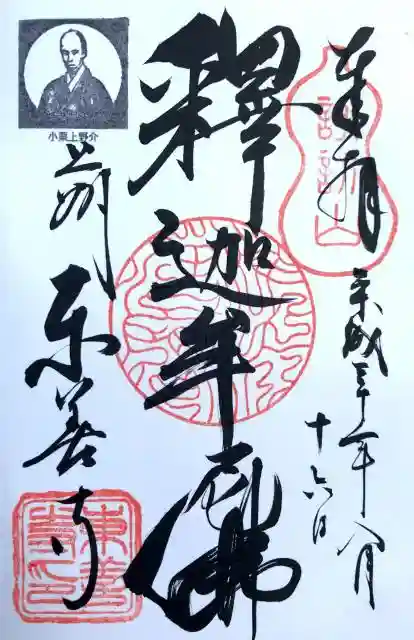 奉拝
平成三十年八月
十六日
釋迦牟尼佛
小栗上野介
上州
东善寺
東善寺印